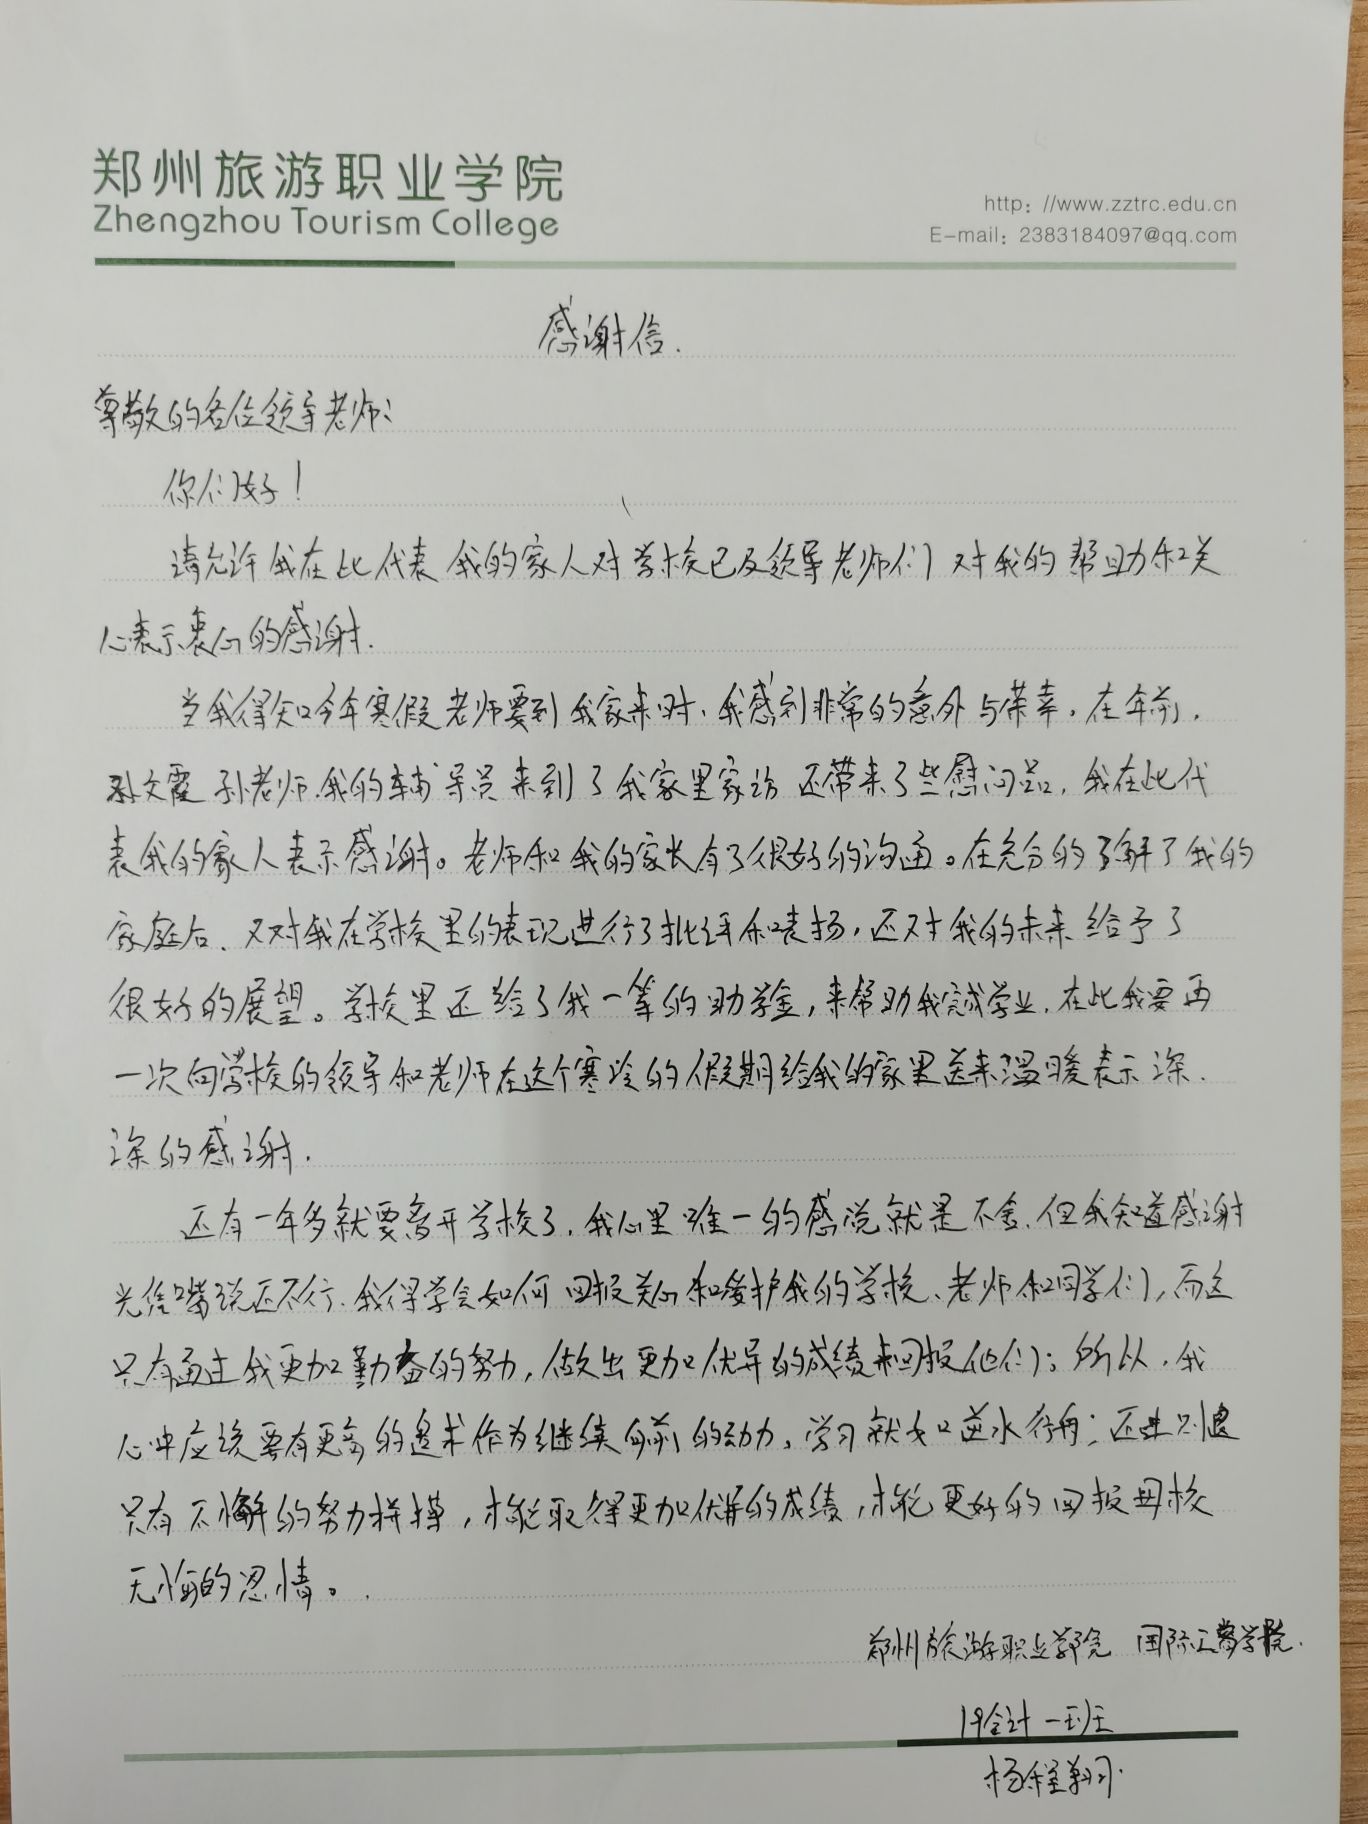 郑州旅游职业学院
Zhengzhou Tourism College
http: //www.zztrc.edu.cn
E-mail: 2383184097@qq.com
感谢信.
尊敬的各位领导老师：
你们好！
请允许我在此代表我的家人对学校已及领导老师们对我的帮助和关
心表示衷心的感谢.
当我得知今年寒假老师要到我家来时，我感到非常的意外与荣幸，在年前，
孙文霞孙老师，我的辅导员来到了我家里家访还带来了些慰问品，我在此代
表我的家人表示感谢。老师和我的家长有了很好的沟通。在充分的了解了我的
家庭后，又对我在学校里的表现进行了批评和表扬，还对我的未来给予了
很好的展望。学校里还给了我一等的助学金，来帮助我完成学业，在此我要再
一次向学校的领导和老师在这个寒冷的假期给我的家里送来温暖表示深
深的感谢.
还有一年多就要离开学校了，我心里唯一的感觉就是不舍，但我知道感谢
光凭嘴说还不行，我得学会如何回报关心和爱护我的学校、老师和同学们，而这
只有通过我更加勤奋的努力，做出更加优异的成绩来回报他们；所以，我
心中应该要有更高的追求作为继续向前的动力，学习就如逆水行舟；不进则退
只有不懈的努力拼搏，才能取得更加优异的成绩，才能更好的回报母校
无悔的恩情。
郑州旅游职业学院 国际工商学院.
19会计一班
杨程翔